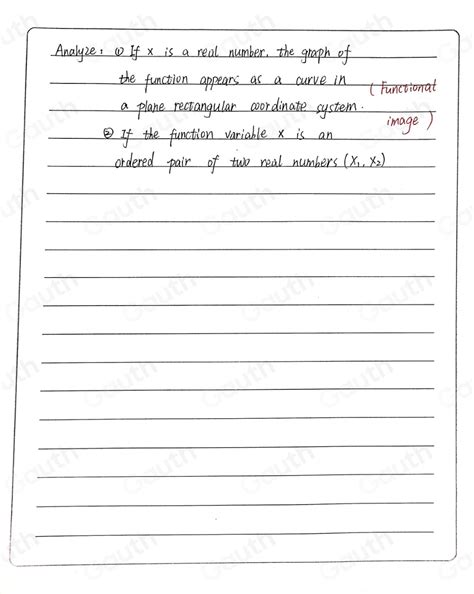 Analyze: ① If x is a real number, the graph of
the function appears as a curve in
(Functional
a plane rectangular coordinate system.
image)
② If the function variable x is an
ordered pair of two real numbers (x₁, x₂)